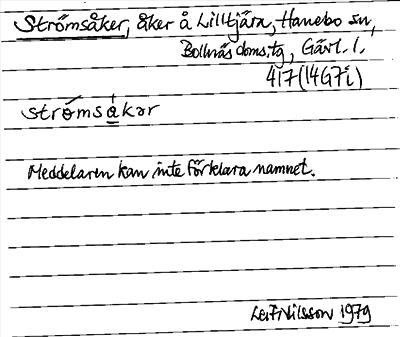 Strömsåker, åker å Lilltjära, Hanebo sn,
Bollnäs doms.tg, Gävl. l.
417 (14G7i)
strömså̀kər
Meddelaren kan inte förklara namnet.
Leif Nilsson 1979